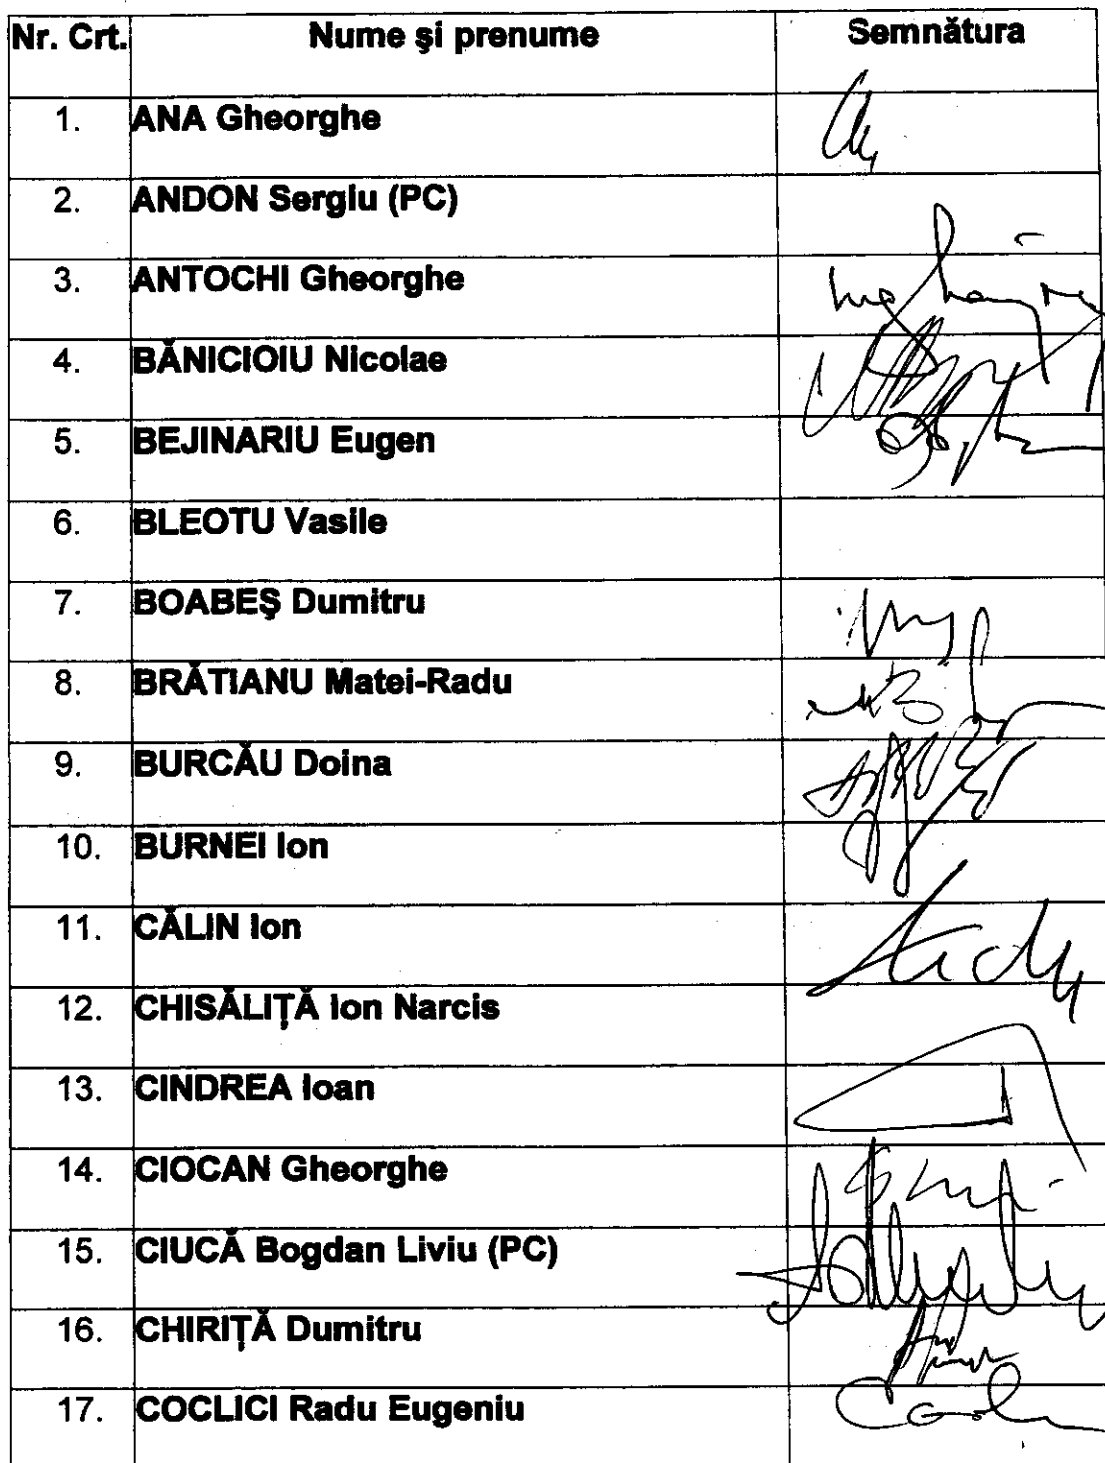 Nr. Crt. Nume şi prenume Semnătura
1. ANA Gheorghe
2. ANDON Sergiu (PC)
3. ANTOCHI Gheorghe
4. BĂNICIOIU Nicolae
5. BEJINARIU Eugen
6. BLEOTU Vasile
7. BOABEŞ Dumitru
8. BRĂTIANU Matei-Radu
9. BURCĂU Doina
10. BURNEI Ion
11. CĂLIN Ion
12. CHISĂLIŢĂ Ion Narcis
13. CINDREA Ioan
14. CIOCAN Gheorghe
15. CIUCĂ Bogdan Liviu (PC)
16. CHIRIŢĂ Dumitru
17. COCLICI Radu Eugeniu